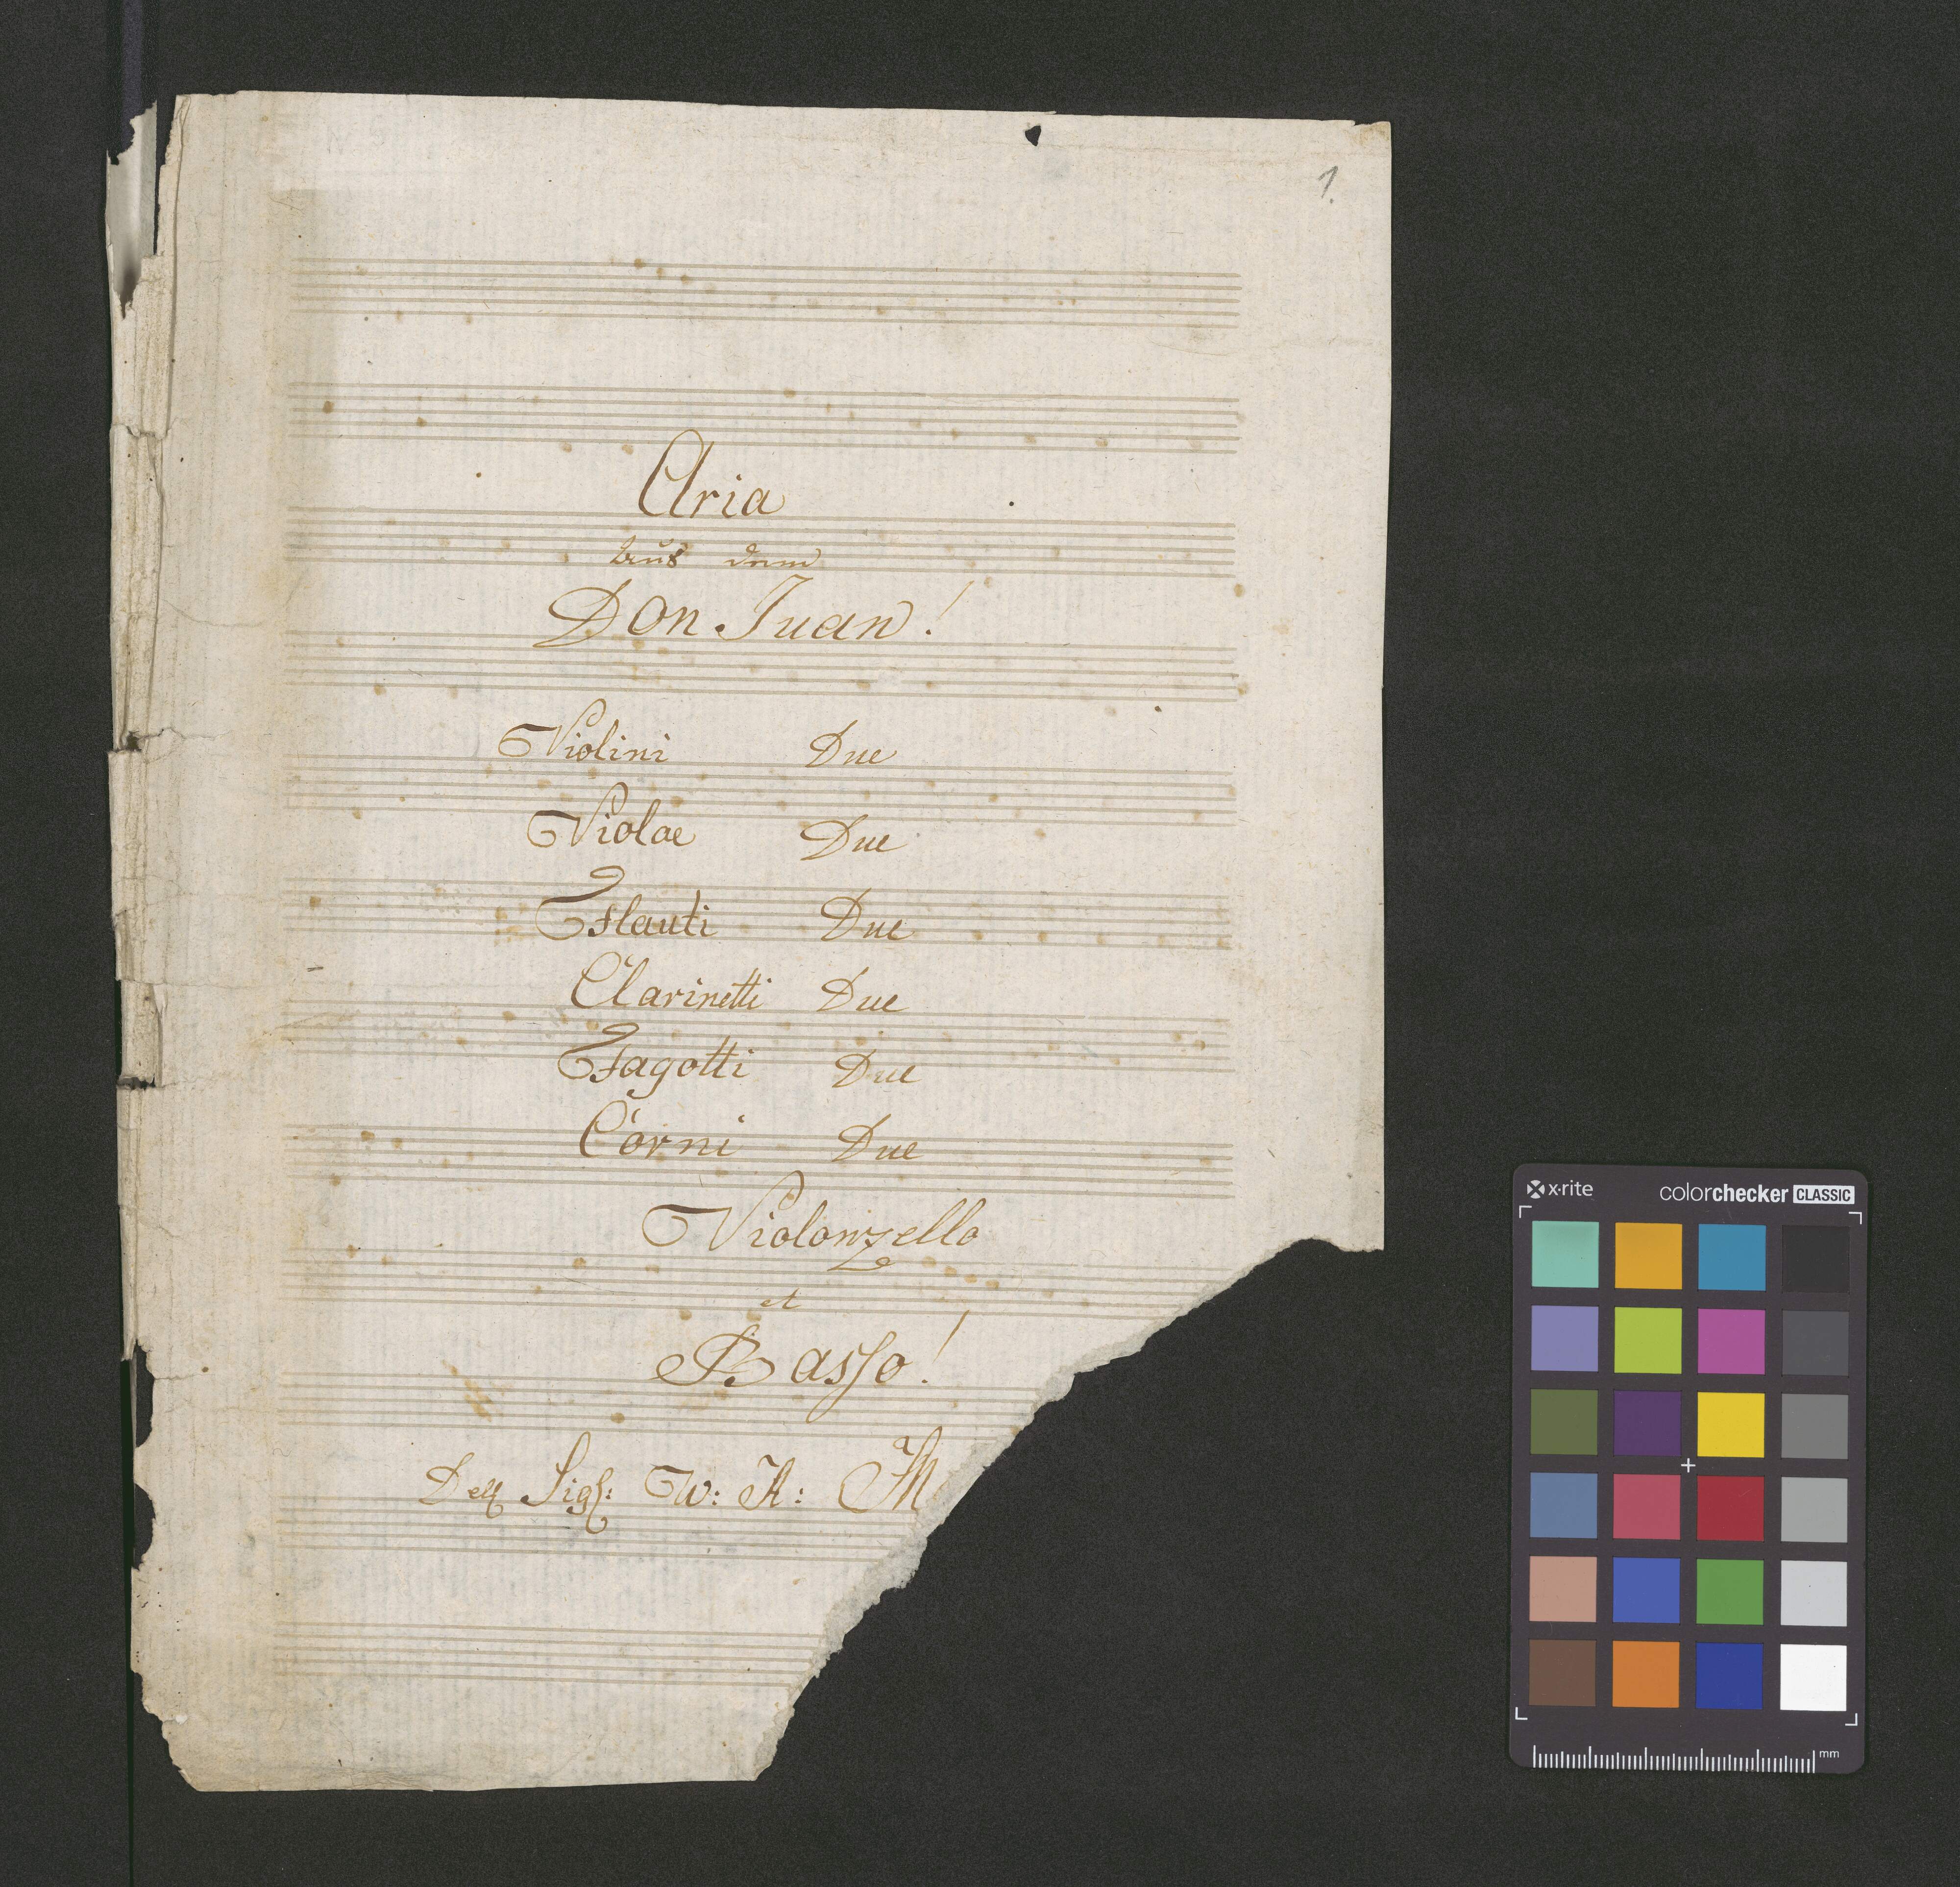 1.
Aria
aus dem
Don Juan!
Violini Due
Violae Due
Flauti Due
Clarinetti Due
Fagotti Due
Corni Due
Violonzello
et
Basso!
Del Sigl: W: A: M
x-rite
colorchecker CLASSIC
mm